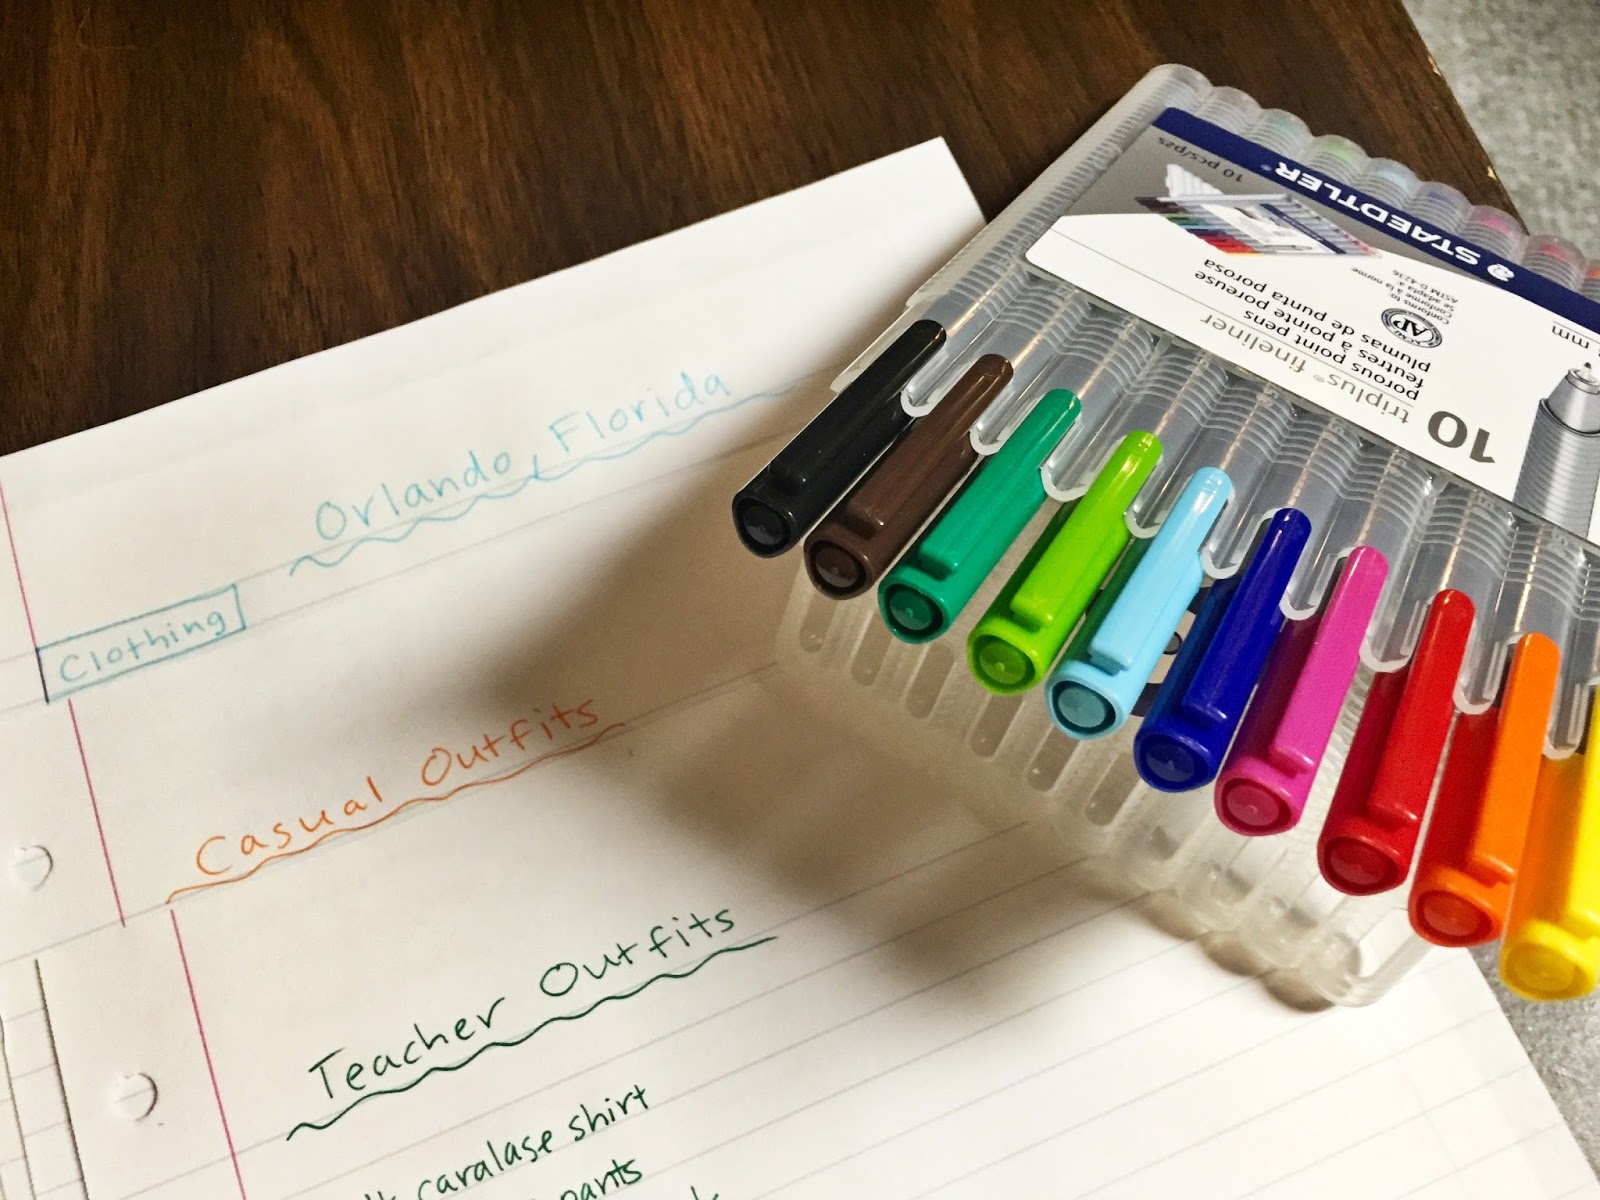 Orlando, Florida
Clothing
Casual Outfits
Teacher Outfits
caralase shirt
pants
STAEDTLER®
10 pcs/pzs
10
triplus® fineliner
porous point pens
feutres à pointe poreuse
plumas de punta porosa
AP
Conforms to:
Se adapta à:
à la norme
ASTM D-4236
mm